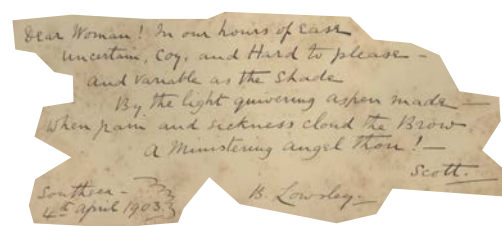 Dear Woman! In our hours of ease
uncertain, coy, and Hard to please -
and variable as the Shade
By the light quivering aspen made —
When pain and sickness cloud the Brow,
a Ministering angel thou! —
Scott.
Southsea -
4th April 1903.
B. Lowsley.